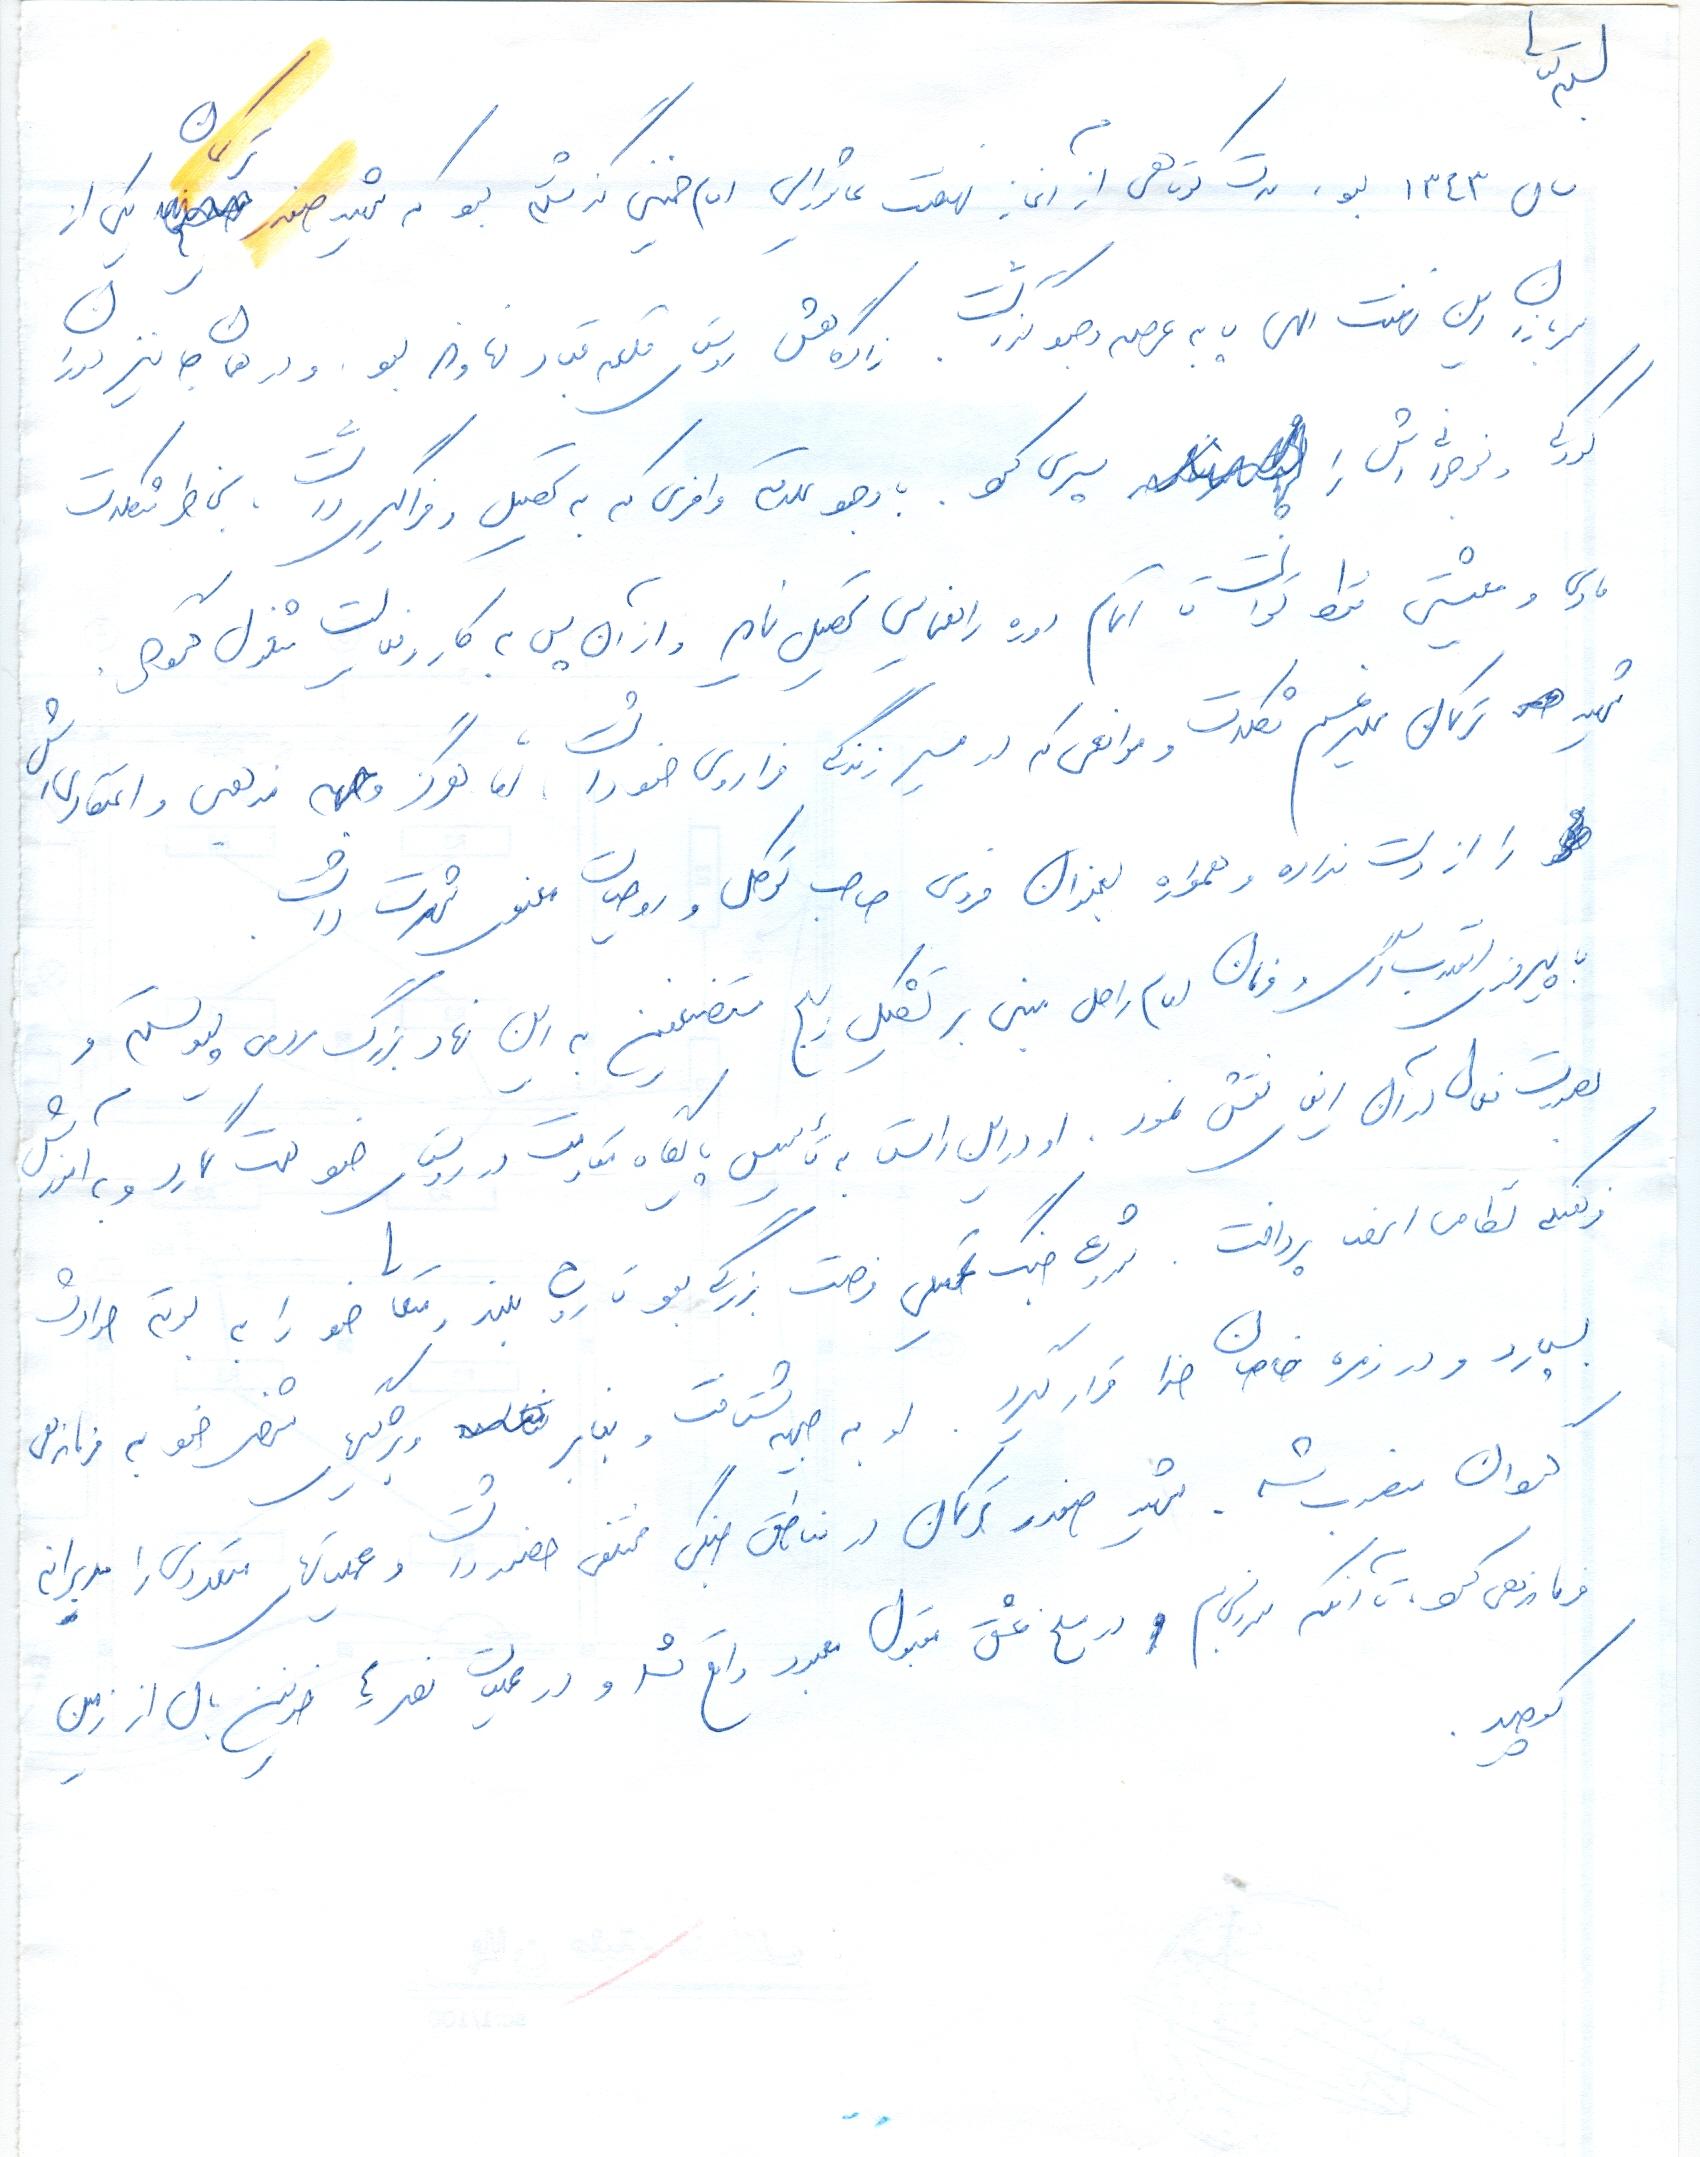 بسمه تعالی
سال ١٣٤٣ بود، مدت کوتاهی از آغاز نهضت عاشورایی امام خمینی گذشته بود که شهید صفدر ترکمان یکی از
سربازان این نهضت الهی پا به عرصه وجود گذاشت. زادگاهش روستای قلعه قباد نهاوند بود. و در همان جا نیز دوران
کودکی و نوجوانی اش را سپری کرد. با وجود علاقه وافری که به تحصیل و فراگیری داشت، بخاطر مشکلات
مادی و معیشتی فقط توانست تا اتمام دوره راهنمایی تحصیل نماید و از آن پس به کار و فعالیت مشغول گردید.
شهید ترکمان علیرغم مشکلات و موانعی که در مسیر زندگی فرا روی خود داشت، اما هرگز وجهه مذهبی و اعتقادی اش
را از دست نداده و همواره بعنوان فردی صاحب توکل و روحیات معنوی شهرت داشت.
با پیروزی انقلاب اسلامی و فرمان امام راحل مبنی بر تشکیل بسیج مستضعفین به این نهاد بزرگ مردمی پیوسته و
بصورت فعال در آن ایفای نقش نمود. او در این راستا به تأسیس پایگاه مقاومت در روستای خود همت گمارد و به آموزش
فرهنگی نظامی اعضاء پرداخت. شروع جنگ تحمیلی فرصت بزرگی بود تا روح بلند و متعالی خود را به بوته حوادث
بسپارد و در زمره خاصان خدا قرار گیرد. او به جبهه شتافت و بنابر ویژگیهای شخصی خود به فرماندهی
گروهان منصوب شد. شهید صفدر ترکمان در مناطق جنگی مختلفی حضور داشت و عملیاتهای متعددی را مدبرانه
فرماندهی کرد، تا آنکه سرانجام در مسلخ عشق مقبول معبود واقع شد و در عملیات نصر ٤ خونین بال از زمین
کوچید.